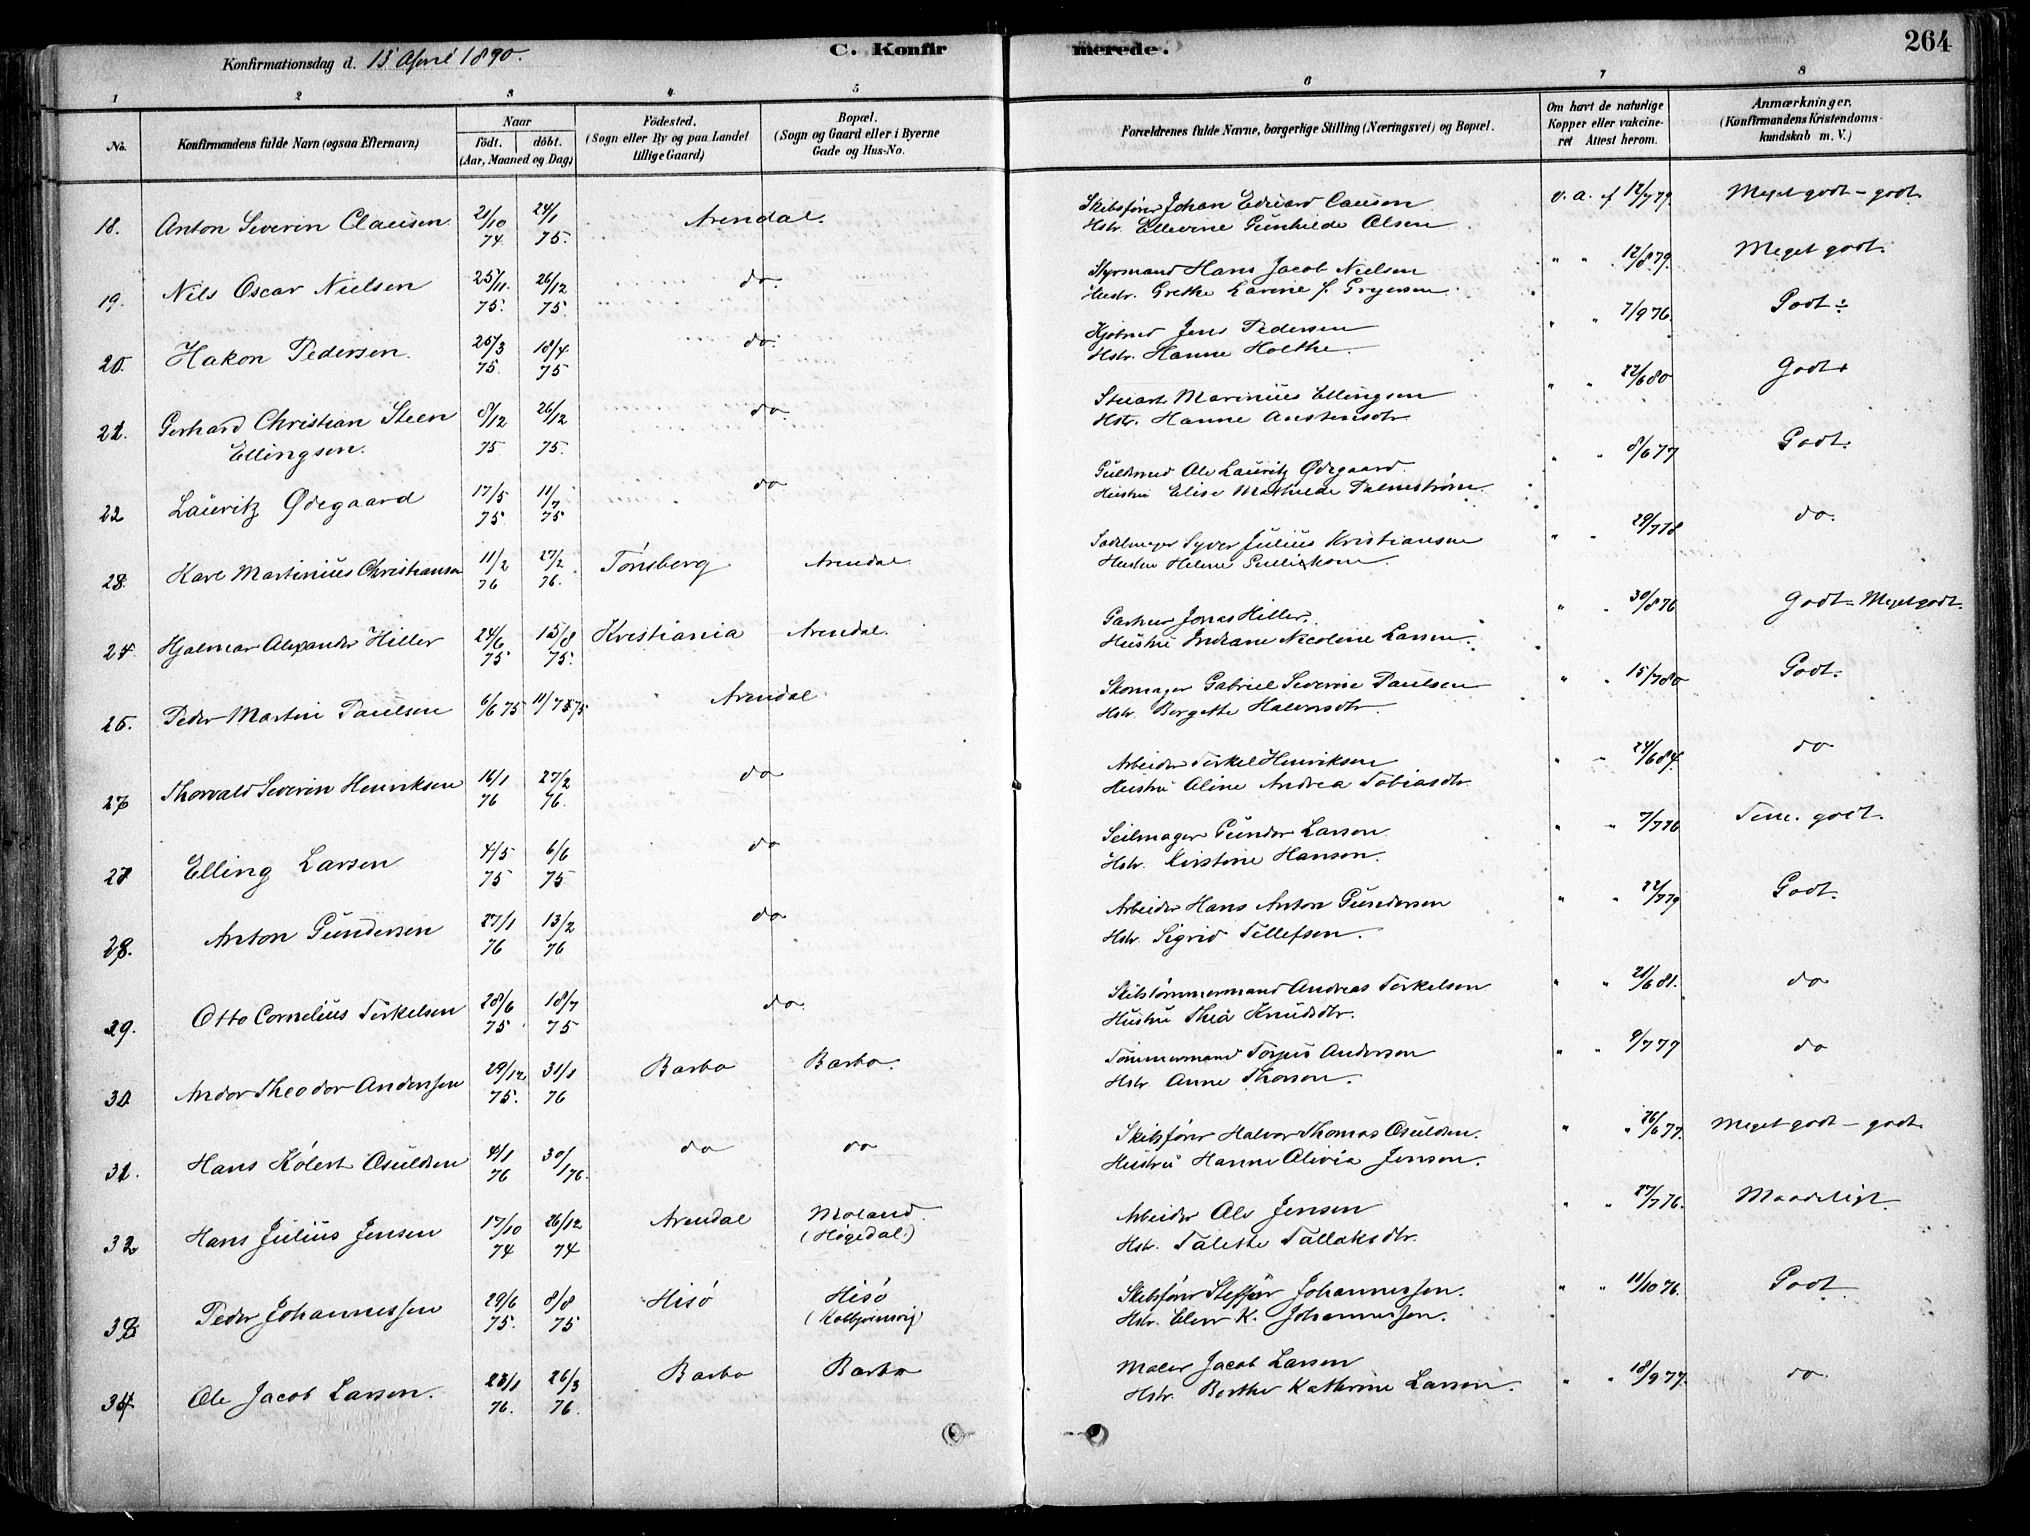 Konfirmationsdag d. 15 April 1890.
C. Konfirmerede.
264
1 2 3 4 5 6 7 8
No.
Konfirmandens fulde Navn (ogsaa Efternavn)
Naar
födt. döbt.
(Aar, Maaned og Dag)
Födested.
(Sogn eller By og paa Landet
tillige Gaard)
Bopæl.
(Sogn og Gaard eller i Byerne
Gade og Hus-No.
Forældrenes fulde Navne, borgerlige Stilling (Næringsvei) og Bopæl.
Om havt de naturlige
Kopper eller vakcine-
ret Attest herom.
Anmærkninger.
(Konfirmandens Kristendoms-
kundskab m. V.)
18. Anton Severin Clausen 21/10 74. 24/1 75. Arendal. Skibsfører Johan Eduard Causen v. a. f 12/7 79. Meget godt - godt.
Hstr. Ellevine Gunhilde Olsen
19. Nils Oscar Nielsen 25/11. 75. 26/12 75. do. Styrmand Hans Jacob Nielsen " " 12/8 79. Meget godt.
Hustr. Grethe Larine f.
20. Hakon Pedersen. 25/3 75. 18/4 75 do. Jens Pedersen " " 7/9 76. Godt ÷
Hstr. Hanne Holthe.
21. Gerhard Christian Steen 8/12 75 26/12 75. do. Stuart Marinius Ellingsen " " 22/6 80 Godt
Ellingsen. Hstr. Hanne Austensdtr.
22 Lauritz Ødegaard 17/5 75. 11/7 75 do Guldsmed Ole Lauritz Ødegaard. " " 8/6 77 Godt.
Hustru Elise Mathilde Palmstrøm.
23. Karl Martinius Christiansen 11/2 76 27/2 76. Tönsberg Arendal. Sadelmager Syver Julius Kristiansen " " 29/7 78 do.
Hustru Helene
24. Hjalmar Alexander Hiller 24/6 75 15/8 75. Kristiania Arendal. Gartner Jonas Hiller. " " 30/8 76 Godt - Meget godt.
Hustru Indiane Nicoline Larsen.
25. Peder Martin Paulsen 6/6 75 11/7 75 Arendal Skomager Gabriel Severin Paulsen " " 15/7 80 Godt.
Hstr. Borgette
26 Thorvald Severin Henriksen 16/1 76 27/2 76. do Arbeider Terkel Henriksen " " 24/6 84. do
Hustru Aline Andrea Tobiasdtr.
27 Elling Larsen 4/5 75 6/6 75 do Seilmager Gunder Larsen " " 7/7 76 Tem. godt.
Hstr. Kirstine Hansen.
28. Anton Gundersen 27/1 76 13/2 76 do Arbeider Hans Anton Gundersen " " 22/7 79 Godt.
Hstr. Sigrid Tellefsen.
29. Otto Cornelius Terkelsen 28/6 75. 18/7 75 do. Skibstömmermand Andreas Terkelsen " " 21/6 81. do
Hustru Thea Knudsdtr.
30. Andor Theodor Anderssen 29/12 75. 31/1 76 Barbo Barbo. Tömmermand Torjus Andersen " " 9/7 77 do
Hstr. Anne Thorsen.
31. Hans Kölert Osuldsen 4/1 76 30/1 76. do do Skibsfører Halvor Thomas Osuldsen. " " 26/6 77. Meget godt - godt.
Hustru Hanne Olivia Jensen.
32 Hans Julius Jensen 17/10 74 26/12 74 Arendal Moland (Høgedal.) Arbeider Ole Jensen " " 27/7 76. Maadeligt.
Hstr. Talette Tallaksdtr.
33 Peder Johannessen 29/6 75. 8/8 75 Hisö Hisö (Kolbjørnsvig) Skibsfører Steffen Johannessen. " " 11/10 76. Godt
Hstr. Elen K. Johannessen.
34 Ole Jacob Larsen. 23/1 76. 26/3 76. Barbo Barbo Maler Jacob Larsen " " 18/9 77. do.
Hstr. Berthe Kathrine Larsen.